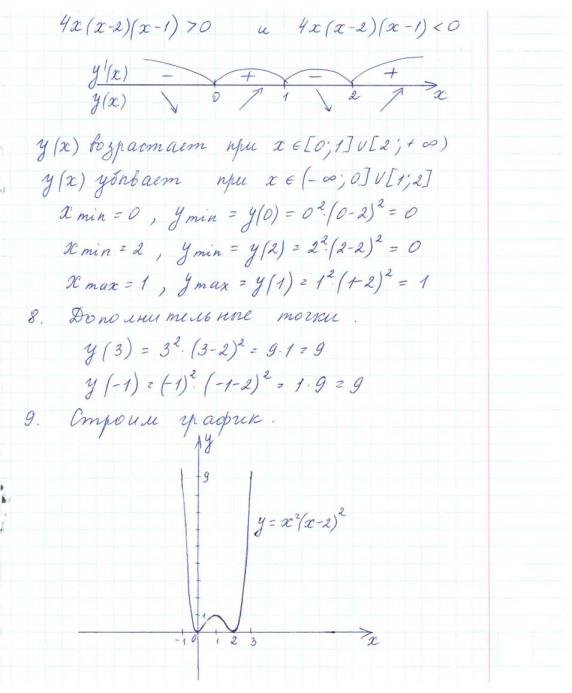 4x(x-2)(x-1)>0 и 4x(x-2)(x-1)<0
y'(x) - + - +
y(x) 0 1 2 x
y(x) возрастает при x∈[0;1]∪[2;+∞)
y(x) убывает при x∈(-∞;0]∪[1;2]
xmin=0, ymin=y(0)=0²·(0-2)²=0
xmin=2, ymin=y(2)=2²·(2-2)²=0
xmax=1, ymax=y(1)=1²·(1-2)²=1
8. Дополнительные точки.
y(3)=3²·(3-2)²=9·1=9
y(-1)=(-1)²·(-1-2)²=1·9=9
9. Строим график.
y
9
y=x²(x-2)²
1
-1 0 1 2 3 x